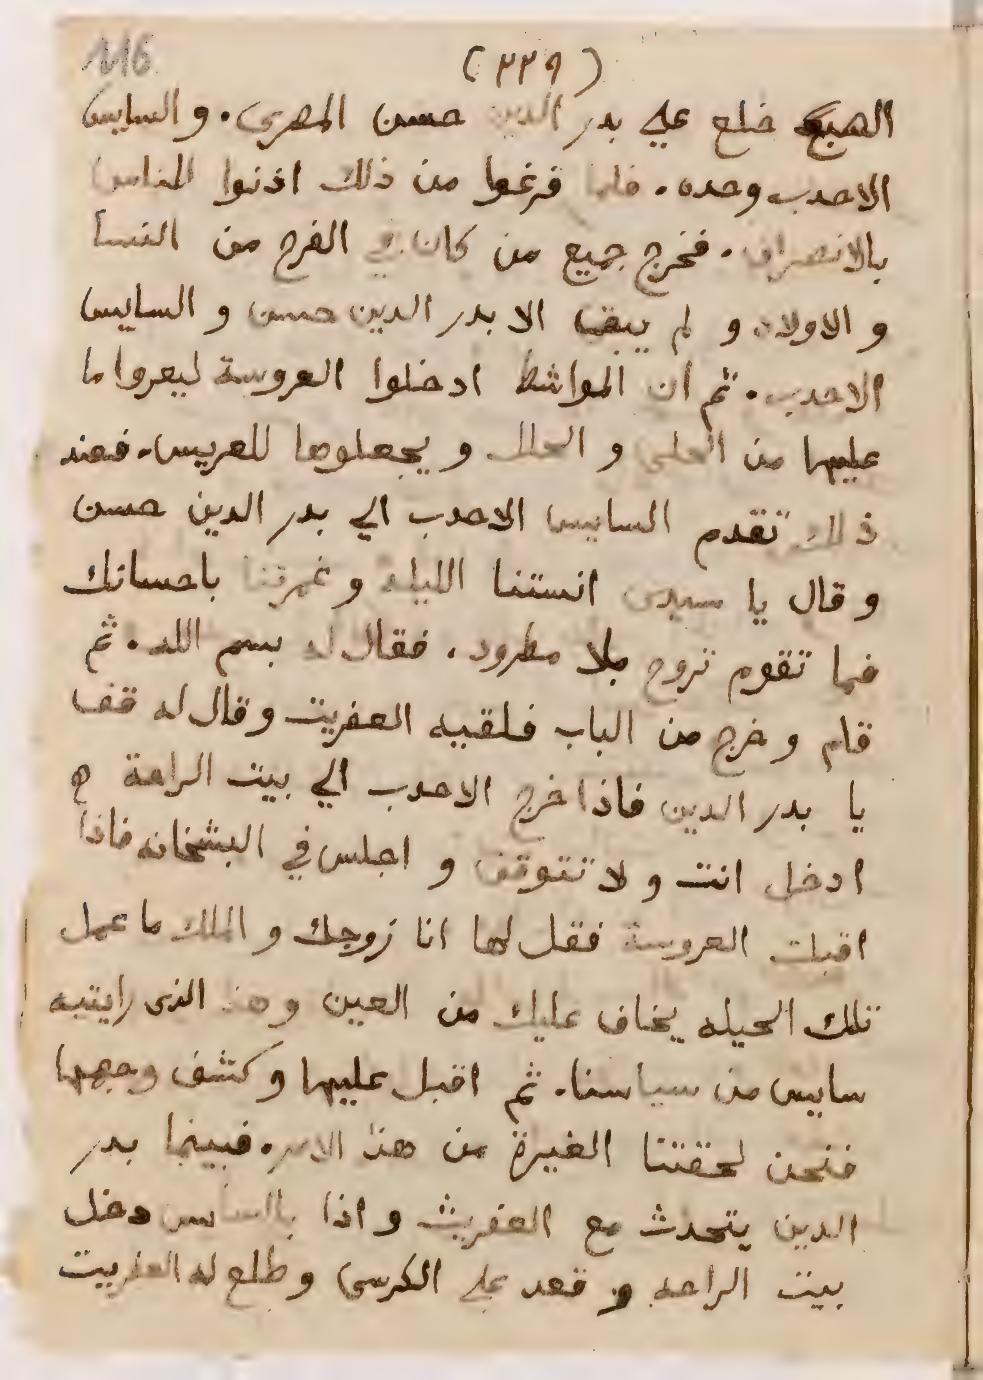 116
(٢٣٩)
الصبع خلع علي بدر الدين حسن المصري. والسايس
الاحدب وحده. فلما فرغوا من ذلك اذنوا للناس
بالانصراف. فخرج جميع من كان في الفرح من النسا
والاولاد ولم يبقا الا بدر الدين حسن والسايس
الاحدب. ثم ان المواشط ادخلوا العروسة ليعروا ما
عليها من الحلي والحلل ويجعلوها للعريس. فعند
ذلك تقدم السايس الاحدب الي بدر الدين حسن
وقال يا سيدى انستنا الليله وغمرتنا باحسانك
فما تقوم تروح بلا مطرود. فقال له بسم الله. ثم
قام وخرج من الباب فلقيه العفريت وقال له قف
يا بدر الدين فاذا خرج الاحدب الي بيت الراحة
ادخل انت ولا تتوقف واجلس في البشخانه فاذا
اقبلت العروسة فقل لها انا زوجك والملك ما عمل
تلك الحيله يخاف عليك من العين وهذ الذى رايتيه
سايس من سياسنا. ثم اقبل عليها وكشف وجهها
فنحن لحقتنا الغيرة من هذا الامر. فبينما بدر
الدين يتحدث مع العفريت واذا بالساس دخل
بيت الراحه وقعد علي الكرسي وطلع له العفريت